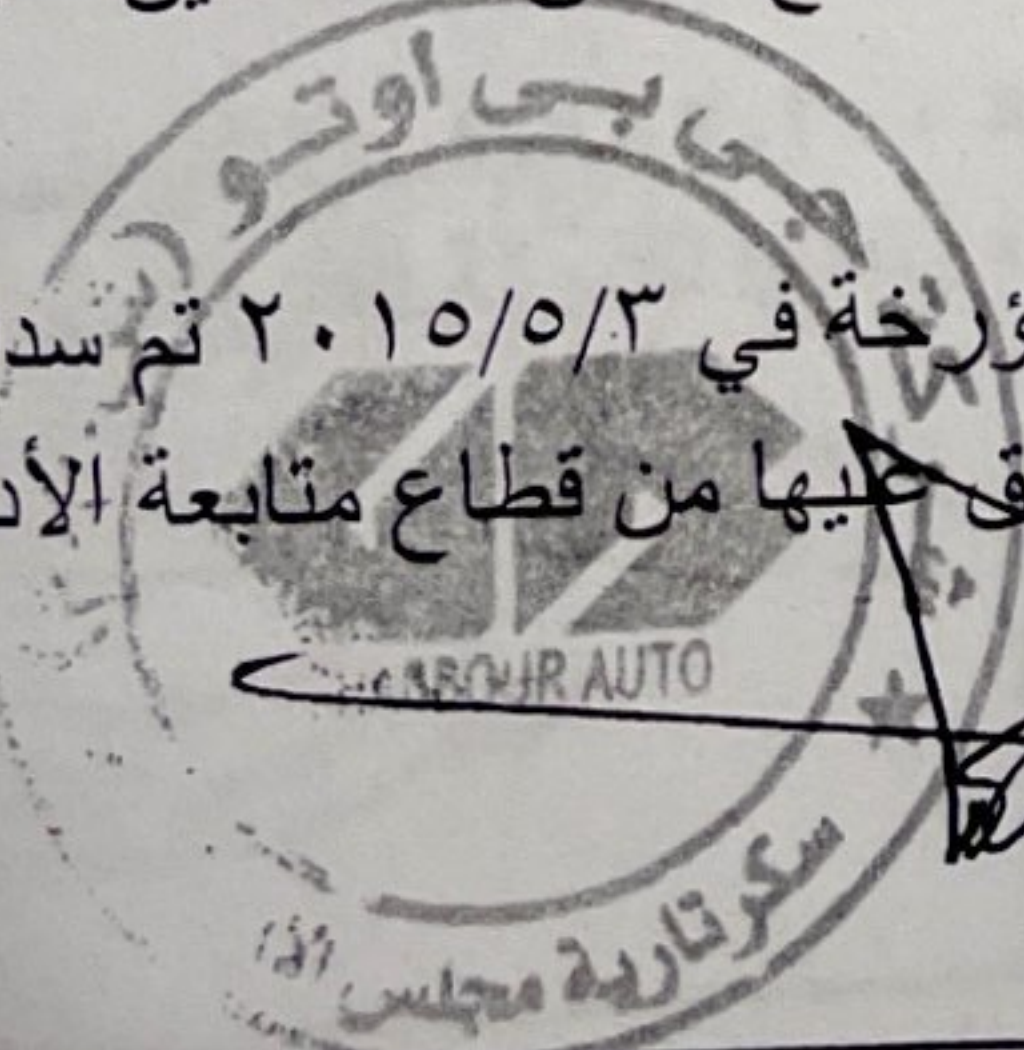 جى بى اوتو
ؤرخة في ٢٠١٥/٥/٣ تم سد
ق عليها من قطاع متابعة الأد
ABBOUR AUTO
سكرتارية مجلس